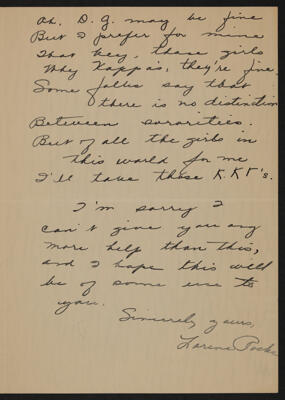 Oh, D. G. may be fine
But I prefer for mine
That key, those girls
Why Kappa's, they're fine.
Some folks say that
there is no distinction
Between sororities.
But of all the girls in
this world for me
I'll take those K.K.Γ's.
I'm sorry I
can't give you any
more help than this,
and I hope this will
be of some use to
you.
Sincerely yours,
Lorena